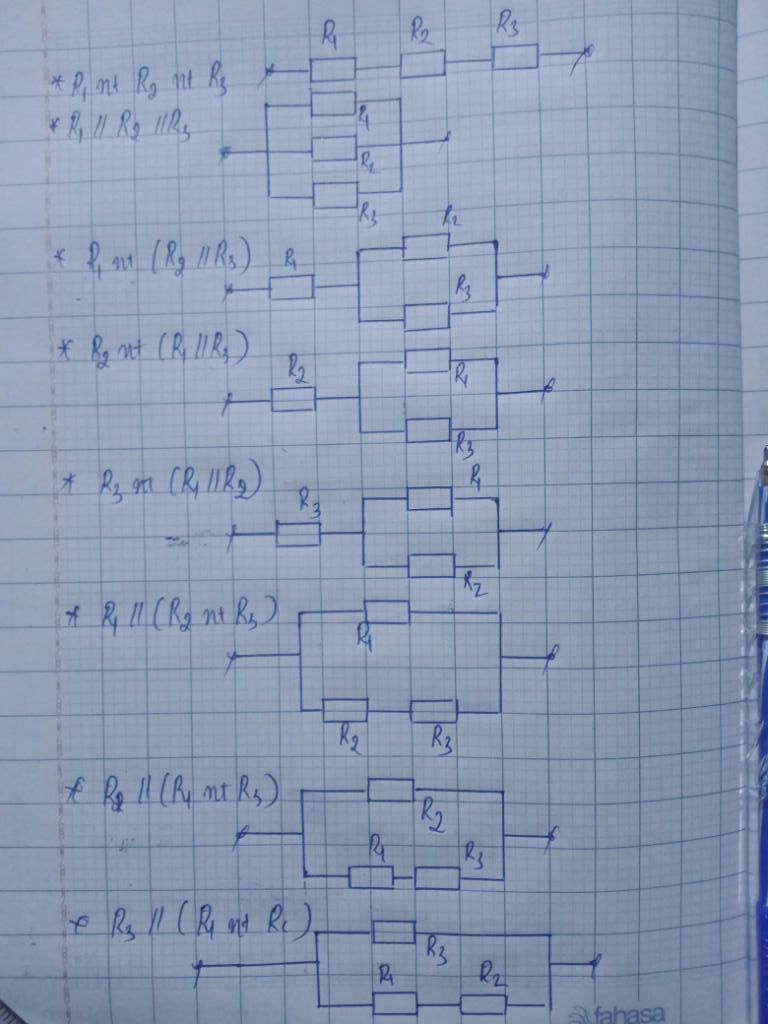 R₁ R₂ R₃
* R₁ nt R₂ nt R₃
* R₁ // R₂ // R₃
R₁
R₂
R₃
* R₁ nt (R₂ // R₃)
R₁
R₂
R₃
* R₂ nt (R₁ // R₃)
R₂
R₁
R₃
* R₃ nt (R₁ // R₂)
R₃
R₁
R₂
* R₁ // (R₂ nt R₃)
R₁
R₂ R₃
* R₂ // (R₁ nt R₃)
R₂
R₁ R₃
* R₃ // (R₁ nt R₂)
R₃
R₁ R₂
fahasa